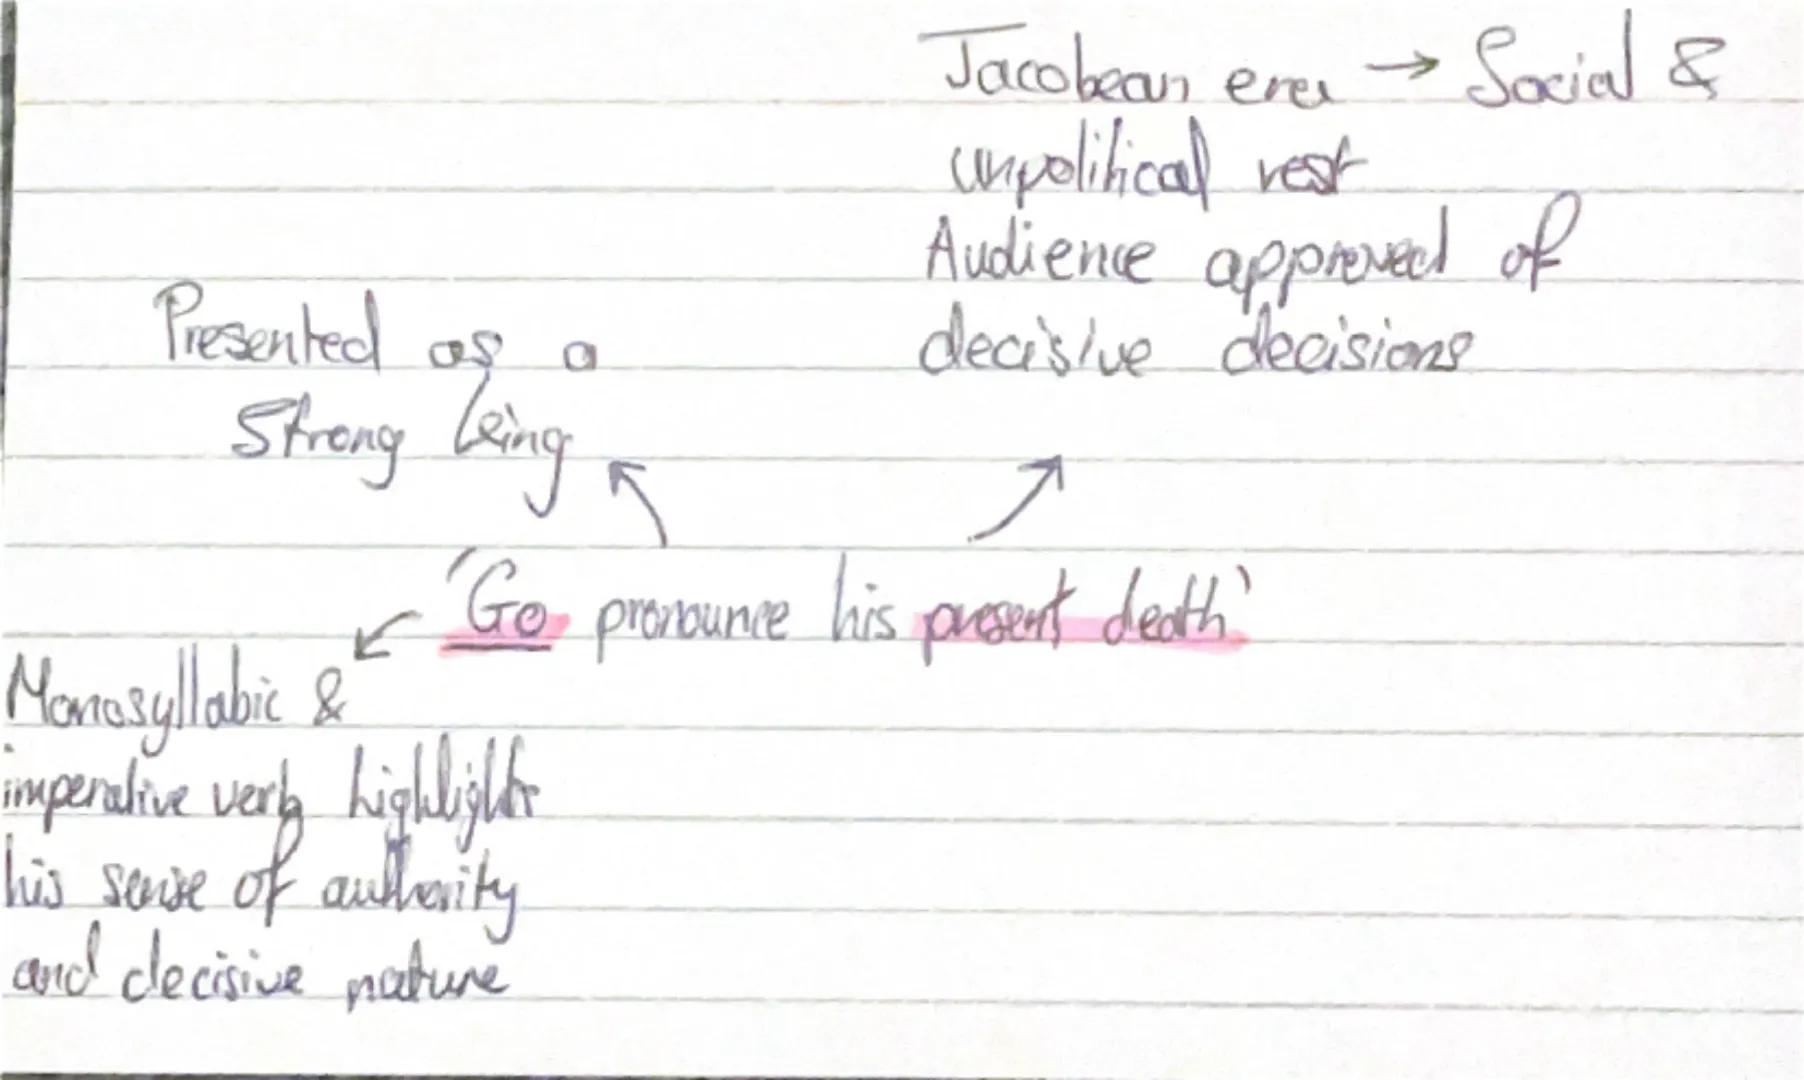 Jacobean era → Social &
unpolitical rest
Audience approved of
decisive decisions
Presented as a
Strong king
'Go pronounce his present death'
Monosyllabic &
imperative verb highlights
his sense of authority
and decisive nature